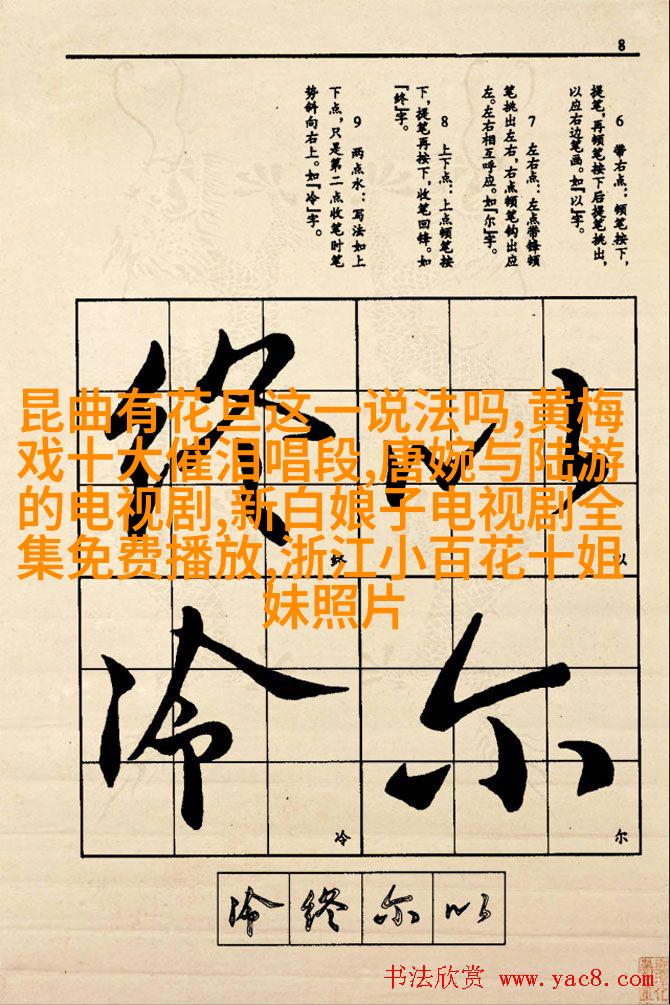 8
6 带右点：顿笔按下，
提笔，再顿笔按下后提笔挑出，
以应右边笔画。如『以』字。
7 左右点：左点带锋顿
笔挑出左右，右点顿笔钩出应
左。左右相互呼应。如『尔』字。
8 上下点：上点顿笔按
下，提笔再按下，收笔回锋。如
『终』字。
9 两点水：写法如上
下点，只是第二点收笔时笔
势斜向右上。如『冷』字。
昆曲有花旦这一说法吗,黄梅
戏十大催泪唱段,唐婉与陆游
的电视剧,新白娘子电视剧全
集免费播放,浙江小百花十姐
妹照片
以
以
终
终
尔
尔
冷
冷
冷 终 尔 以
书法欣赏 www.yac8.com